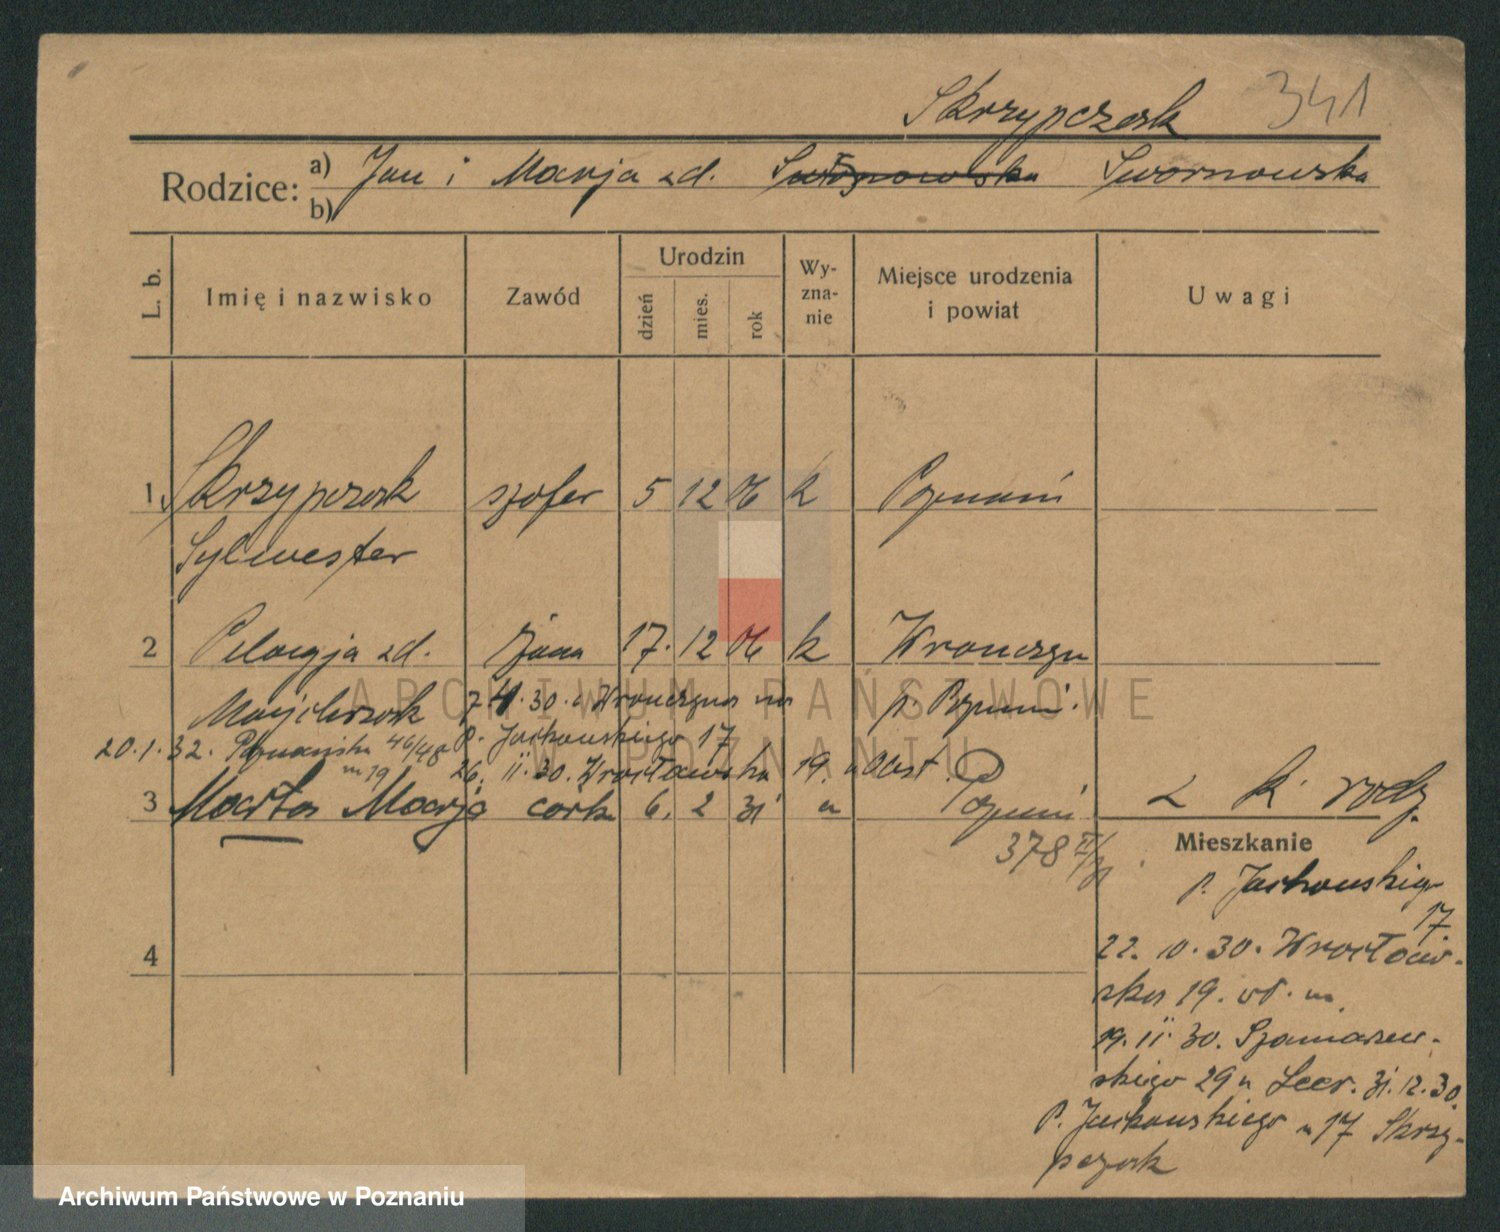 Skrzypczak 341
Rodzice: a) Jan i Marja zd. Swornowska
b)
L. b. Imię i nazwisko Zawód Urodzin dzień mies. rok Wy-zna-nie Miejsce urodzenia i powiat Uwagi
1 Skrzypczak szofer 5 12 06 k Poznań
Sylwester
2 Pelagja zd. żona 17. 12 06 k Wronczyn
Majchrzak 7. 30. Wronczyna p. Poznań.
20.1.32. Poznańska 46/48a P. Jackowskiego 17
m 19 26. II. 30. Wrocławska 19.
3 Marta Marja córka 6. 2 31 Poznań z k. rodz.
378
Mieszkanie
P. Jackowskiego
17.
22. 10. 30. Wrocław-
ska 19.
19. II. 30. Szamarzew-
skiego 29 u 31.12.30.
P. Jackowskiego 17 Skrzy-
pczak
4
ARCHIWUM PAŃSTWOWE
W POZNANIU
Archiwum Państwowe w Poznaniu